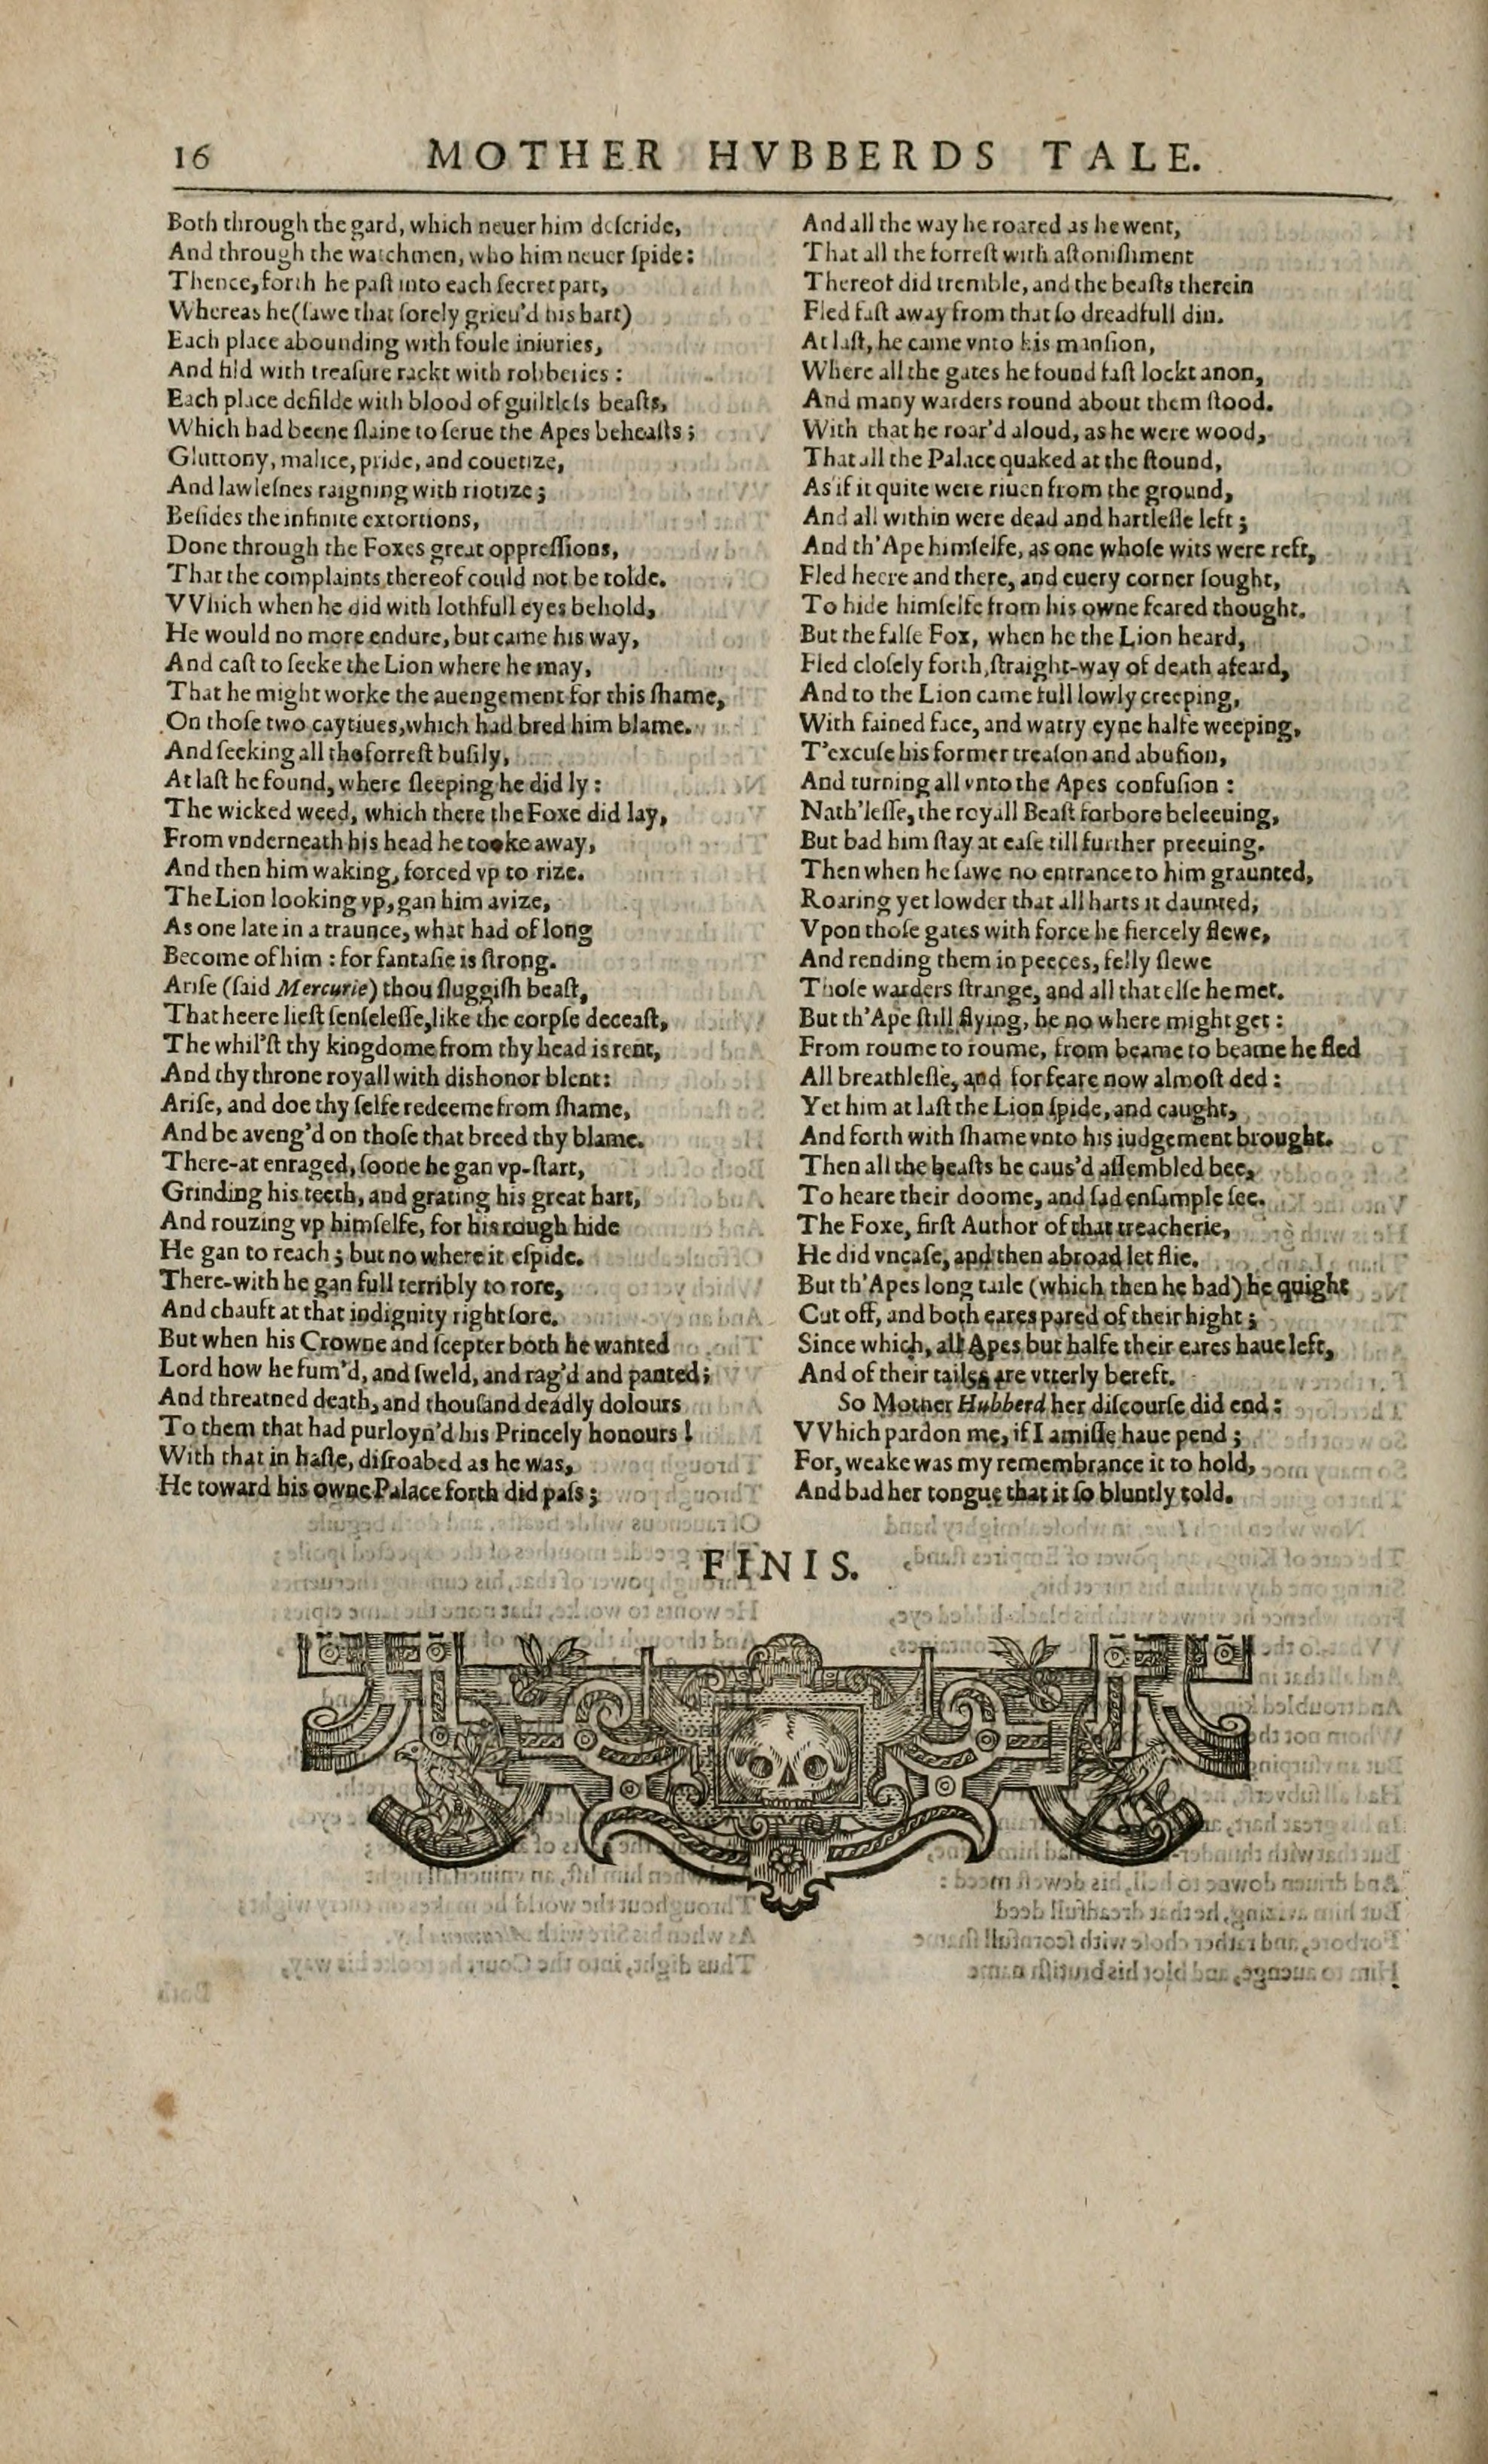 16 MOTHER HVBBERDS TALE.
Both through the gard, which neuer him deſcride,
And through the watchmen, who him neuer ſpide:
Thence, forth he paſt into each ſecret part,
Whereas he (ſawe that ſorely grieu'd his hart)
Each place abounding with foule iniuries,
And fild with treaſure rackt with robberies:
Each place defilde with blood of guiltleſs beaſts,
Which had beene ſlaine to ſerue the Apes beheaſts;
Gluttony, malice, pride, and couetize,
And lawleſnes raigning with riotize;
Beſides the infinite extortions,
Done through the Foxes great oppreſſions,
That the complaints thereof could not be tolde.
VVhich when he did with lothfull eyes behold,
He would no more endure, but came his way,
And caſt to ſeeke the Lion where he may,
That he might worke the auengement for this ſhame,
On thoſe two caytiues, which had bred him blame.
And ſeeking all the forreſt buſily,
At laſt he found, where ſleeping he did ly:
The wicked weed, which there the Foxe did lay,
From vnderneath his head he tooke away,
And then him waking, forced vp to rize.
The Lion looking vp, gan him avize,
As one late in a traunce, what had of long
Become of him: for fantaſie is ſtrong.
Ariſe (ſaid Mercurie) thou ſluggiſh beaſt,
That heere lieſt ſenſeleſſe, like the corpſe deceaſt,
The whil'ſt thy kingdome from thy head is rent,
And thy throne royall with dishonor blent:
Ariſe, and doe thy ſelfe redeeme from ſhame,
And be aveng'd on thoſe that breed thy blame.
There-at enraged, ſoone he gan vp-ſtart,
Grinding his teeth, and grating his great hart,
And rouzing vp himſelfe, for his rough hide
He gan to reach; but no where it eſpide.
There-with he gan full terribly to rore,
And chauft at that indignity right ſore.
But when his Crowne and ſcepter both he wanted
Lord how he fum'd, and ſweld, and rag'd and panted;
And threatned death, and thouſand deadly dolours
To them that had purloyn'd his Princely honours!
With that in haſte, diſroabed as he was,
He toward his owne Palace forth did paſs;
And all the way he roared as he went,
That all the forreſt with aſtoniſhment
Thereof did tremble, and the beaſts therein
Fled faſt away from that ſo dreadfull din.
At laſt, he came vnto his manſion,
Where all the gates he found faſt lockt anon,
And many warders round about them ſtood.
With that he roar'd aloud, as he were wood,
That all the Palace quaked at the ſtound,
As if it quite were riuen from the ground,
And all within were dead and hartleſſe left;
And th'Ape himſelfe, as one whoſe wits were reft,
Fled heere and there, and euery corner ſought,
To hide himſelfe from his owne feared thought.
But the falſe Fox, when he the Lion heard,
Fled cloſely forth, ſtraight-way of death afeard,
And to the Lion came full lowly creeping,
With fained face, and watry eyne halfe weeping,
T'excuſe his former treaſon and abuſion,
And turning all vnto the Apes confuſion:
Nath'leſſe, the royall Beaſt forbore beleeuing,
But bad him ſtay at eaſe till further preeuing.
Then when he ſawe no entrance to him graunted,
Roaring yet lowder that all harts it daunted,
Vpon thoſe gates with force he fiercely flewe,
And rending them in peeces, felly ſlewe
Thoſe warders ſtrange, and all that elſe he met.
But th'Ape ſtill flying, he no where might get:
From roume to roume, from beame to beame he fled
All breathleſſe, and for feare now almoſt ded:
Yet him at laſt the Lion ſpide, and caught,
And forth with ſhame vnto his iudgement brought.
Then all the beaſts he caus'd aſſembled bee,
To heare their doome, and ſad enſample ſee.
The Foxe, firſt Author of that treacherie,
He did vncaſe, and then abroad let flie.
But th'Apes long taile (which then he had) he quight
Cut off, and both eares pared of their hight;
Since which, all Apes but halfe their eares haue left,
And of their tailes are vtterly bereft.
So Mother Hubberd her diſcourſe did end:
VVhich pardon me, if I amiſſe haue pend;
For, weake was my remembrance it to hold,
And bad her tongue that it ſo bluntly told.
FINIS.